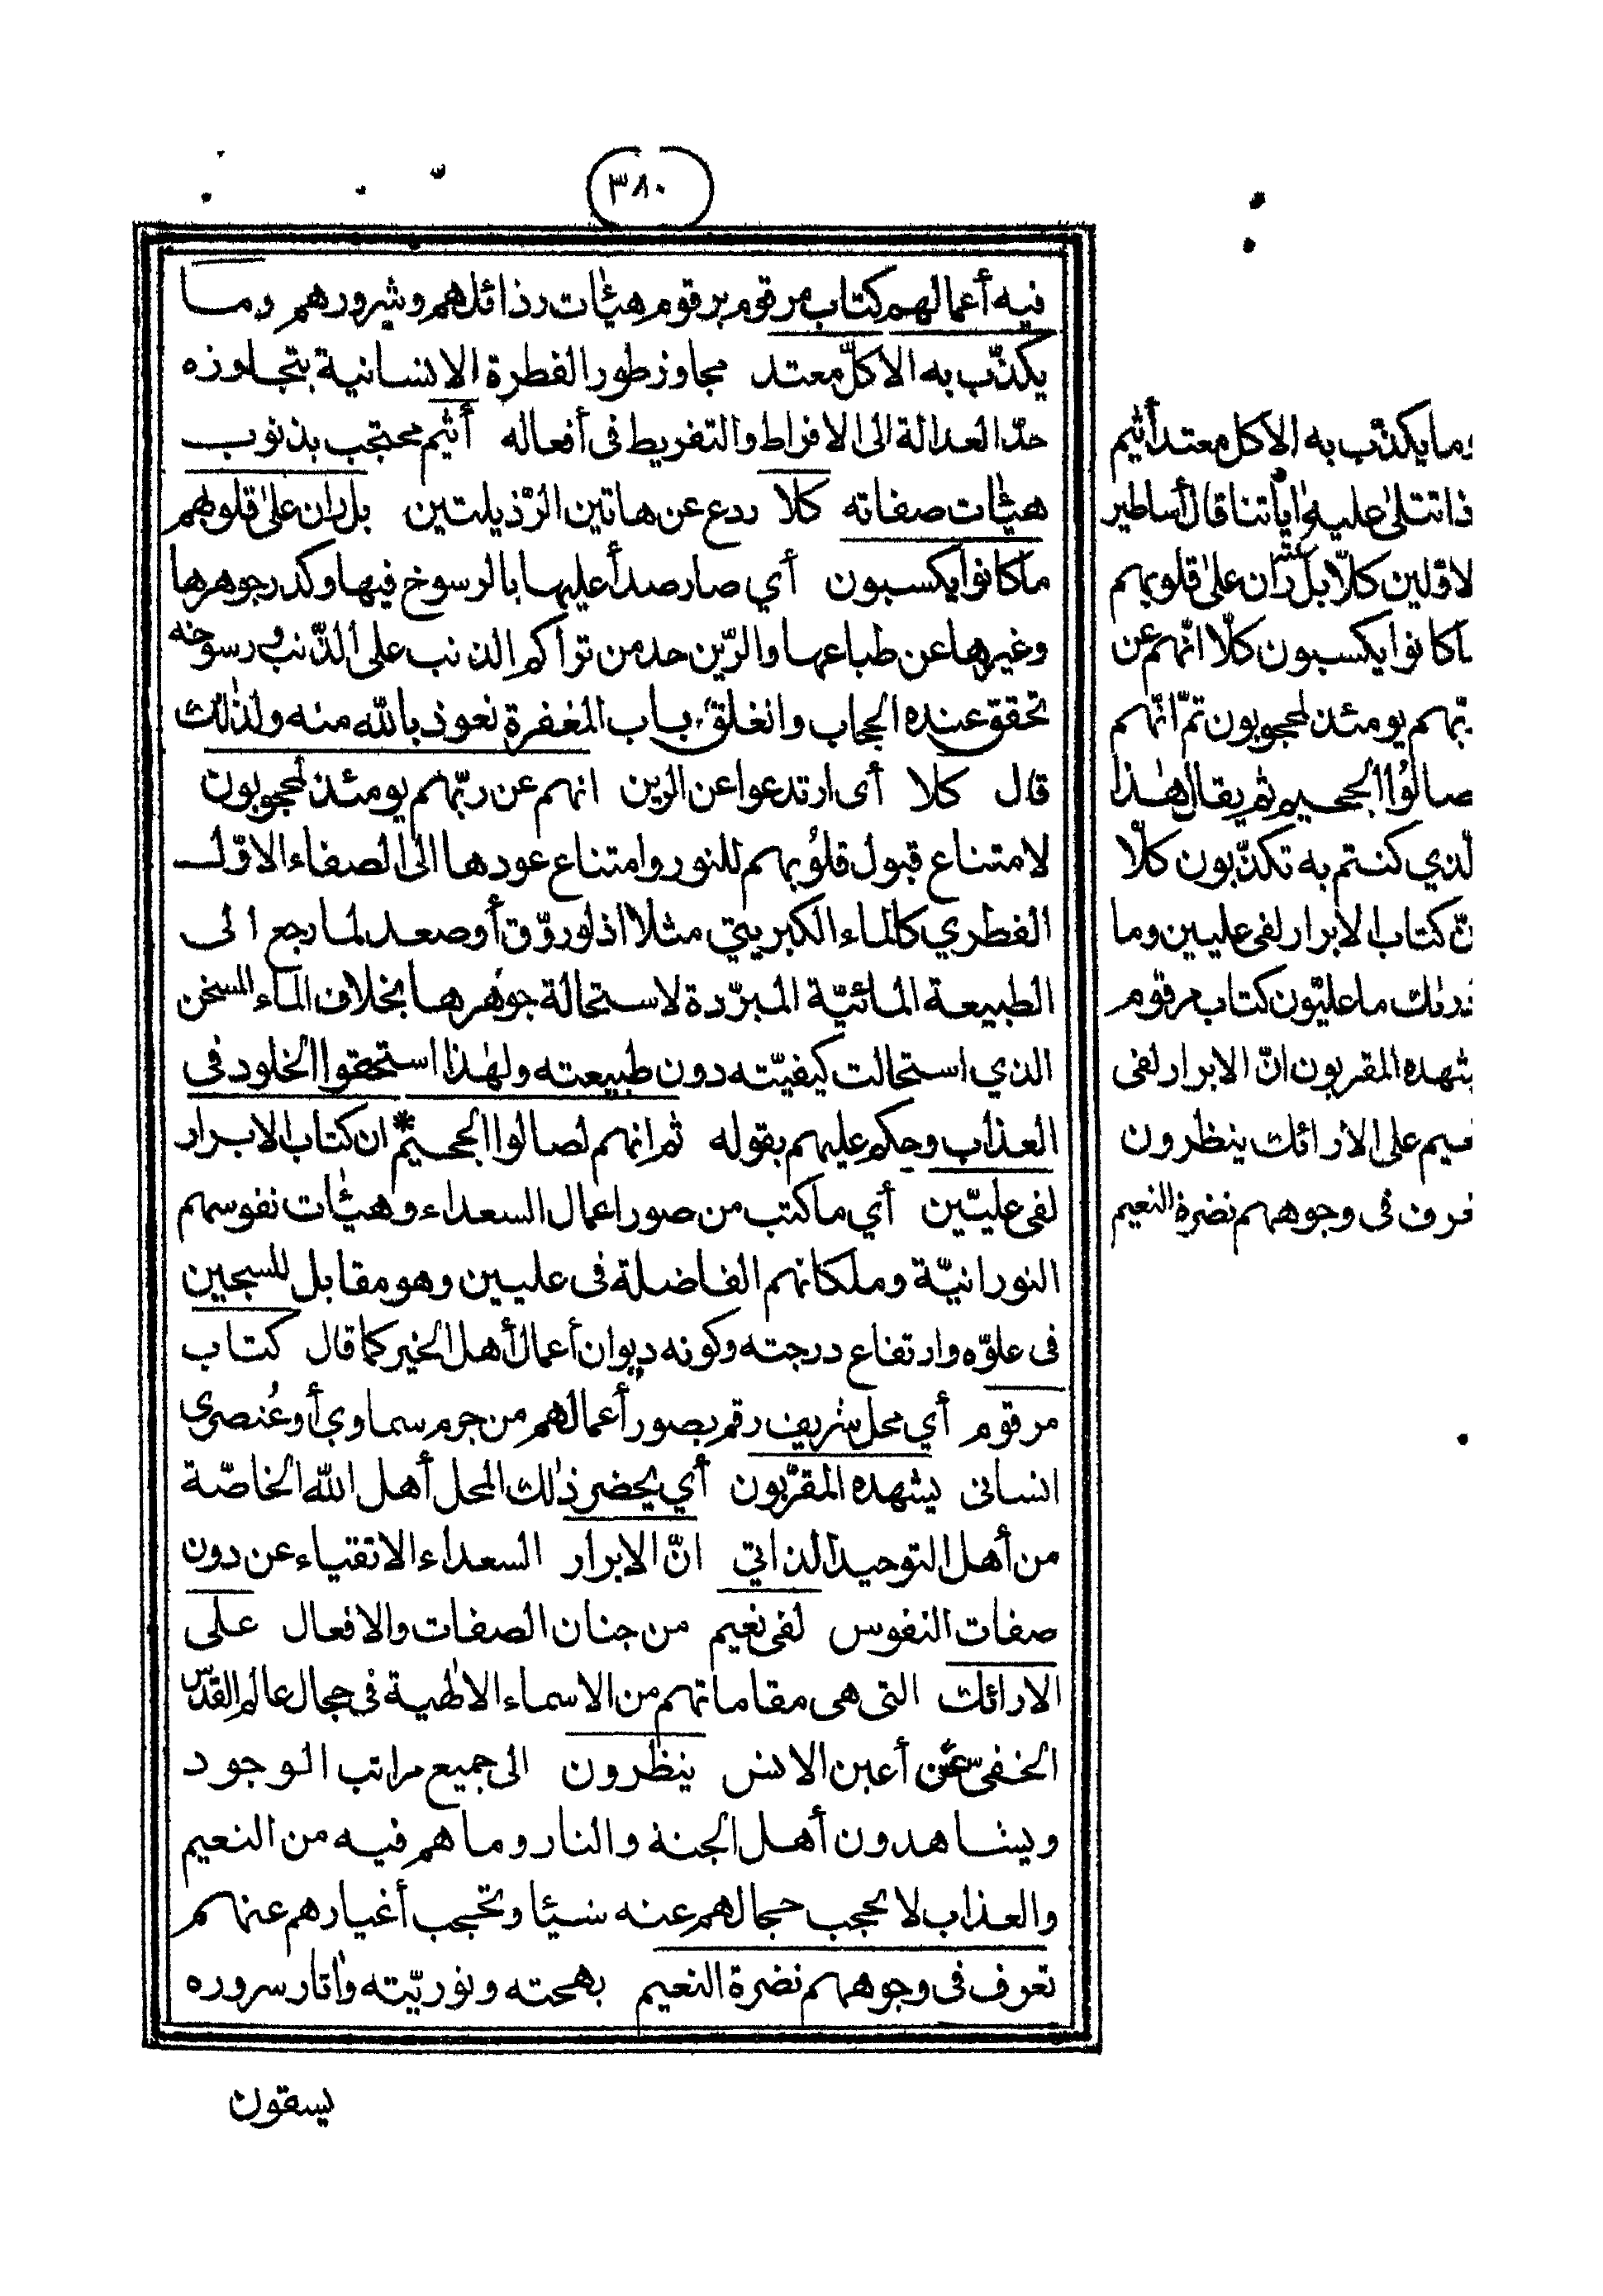 ٣٨٠
فيه أعمالهم كتاب مرقوم برقوم هيئات رذائلهم وشرورهم وما
يكذّب به الا كلّ معتد مجاوز طور الفطرة الانسانية بتجاوزه
حدّ العدالة الى الافراط والتفريط فى أفعاله أثيم محتجب بذنوب
هيئات صفاته كلا ردع عن هاتين الرّذيلتين بل ران على قلوبهم
ما كانوا يكسبون أي صار صدأ عليها بالرسوخ فيها وكدر جوهرها
وغيرها عن طباعها والرّين حد من تراكم الذنب على الذّنب ورسوخه
تحقق عنده الحجاب وانغلق باب المغفرة نعوذ بالله منه ولذلك
قال كلا أى ارتدعوا عن الرين انهم عن ربّهم يومئذ لمحجوبون
لامتناع قبول قلوبهم للنور وامتناع عودها الى الصفاء الاوّل
الفطري كالماء الكبريتي مثلا اذ لو روّق أو صعد لما رجع الى
الطبيعة المائيّة المبرّدة لاستحالة جوهرها بخلاف الماء المسخن
الذي استحالت كيفيّته دون طبيعته ولهذا استحقوا الخلود فى
العذاب وحكم عليهم بقوله ثم انهم لصالوا الجحيم * ان كتاب الابرار
لفى عليّين أي ما كتب من صور اعمال السعداء وهيئات نفوسهم
النورانيّة وملكاتهم الفاضلة فى عليين وهو مقابل للسجين
فى علوّه وارتفاع درجته وكونه ديوان أعمال أهل الخير كما قال كتاب
مرقوم أي محل شريف رقم بصور أعمالهم من جرم سماوي أو عُنصرى
انسانى يشهده المقرّبون أي يحضر ذلك المحل أهل الله الخاصّة
من أهل التوحيد الذاتي انّ الابرار السعداء الاتقياء عن دون
صفات النفوس لفى نعيم من جنان الصفات والافعال على
الارائك التى هى مقاماتهم من الاسماء الالهية فى حجال عالم القدس
الخفىّ عن أعين الانس ينظرون الى جميع مراتب الوجود
ويشاهدون أهل الجنة والنار وما هم فيه من النعيم
والعذاب لا يحجب حجالهم عنه شيئا وتحجب أغيارهم عنهم
تعرف فى وجوههم نضرة النعيم بهجته ونوريّته وآثار سروره
يسقون
وما يكذّب به الا كل معتد أثيم
ذا تتلى عليه اياتنا قال أساطير
لاوّلين كلّا بل ران على قلوبهم
ما كانوا يكسبون كلّا انّهم عن
ربّهم يومئذ لمحجوبون ثمّ انّهم
صالوا الجحيم ثم يقال هذا
لّذي كنتم به تكذّبون كلّا
نّ كتاب الابرار لفى عليين وما
دريك ما عليّون كتاب مرقوم
يشهده المقربون انّ الابرار لفى
عيم على الارائك ينظرون
عرف فى وجوههم نضرة النعيم